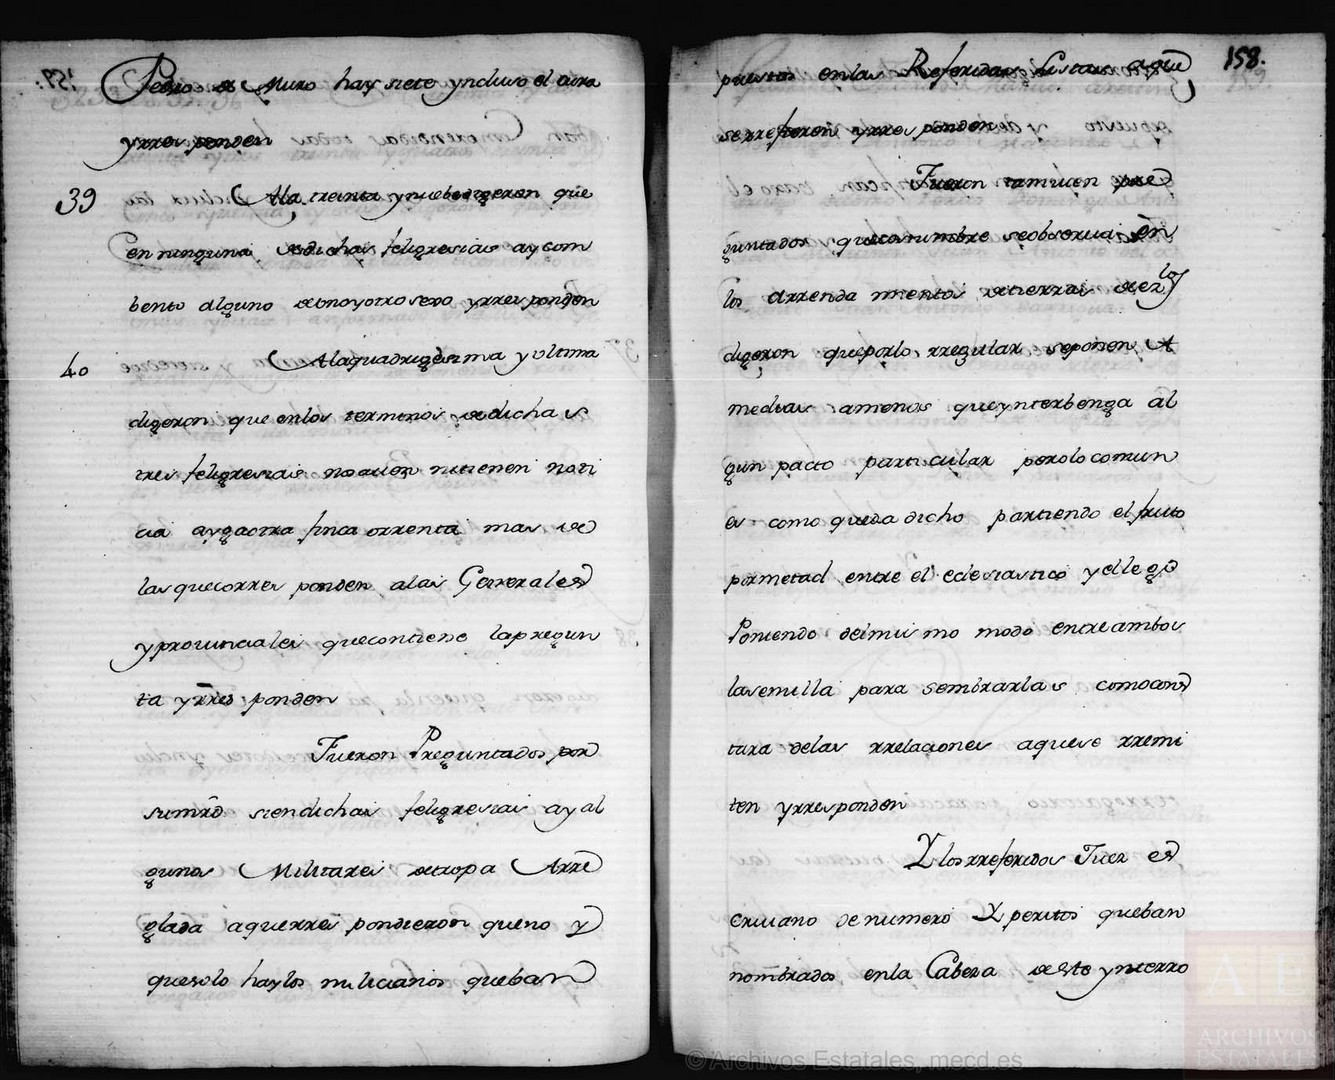 Pedro de Muro hay siete yncluso el cura
yrresponden
39 A la treinta ynuebe digeron que
en ninguna de dichas feligresias ay com
bento alguno de uno yotro sexo yrresponden
40 A la quadrigesima y ultima
digeron que enlos terminos de dicha s
tres feligresias no auer ni tienen noti
cia aygaotra finca orrenta mas de
las quecorres ponden alas Generales
yprouinciales quecontiene lapregun
ta yrres ponden
Fueron Preguntados por
sumrd siendichas feligresias ay al
gunos Militares detropa Arre
glada aquerres pondieron queno y
quesolo haylos milicianos queban
158.
puestos enlas Referidas Listas aque
serrefieren yrres ponden
Fueron tamuien pre
guntados quecostumbre seobserua en
los arrenda mientos detierras
digeron queporlo rregular seponen A
medias amenos queynterbenga al
gun pacto particular perolocomun
es como queda dicho partiendo el fruto
pormetad entre el eclesiastico yellego
Poniendo delmis mo modo entreambos
lasemilla para sembrarlas comocons
tara delas rrelaciones aquese rremi
ten yrresponden
Y losrreferidos Juez es
criuano denumero Y peritos queban
nombrados enla Cabeza deeste ynterro
© Archivos Estatales, mecd.es
AE
ARCHIVOS
ESTATALES